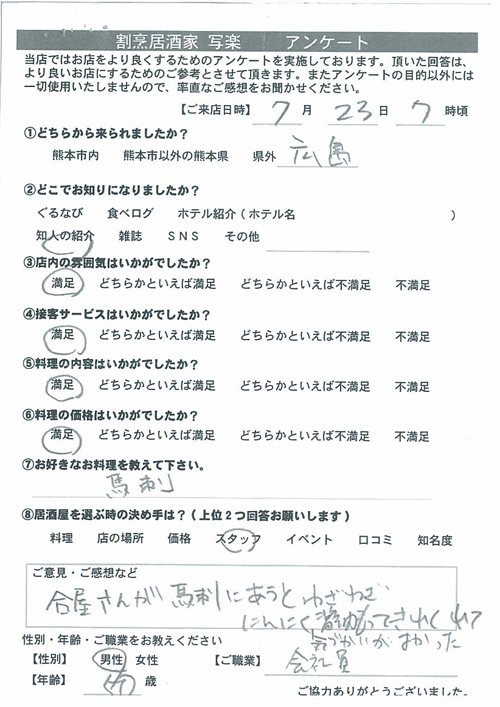 割烹居酒家 写楽　アンケート
当店ではお店をより良くするためのアンケートを実施しております。頂いた回答は、
より良いお店にするためのご参考とさせて頂きます。またアンケートの目的以外には
一切使用いたしませんので、率直なご感想をお聞かせください。
【ご来店日時】 7 月 23 日 7 時頃
①どちらから来られましたか？
熊本市内　熊本市以外の熊本県　県外 広島
②どこでお知りになりましたか？
ぐるなび　食べログ　ホテル紹介（ホテル名　）
知人の紹介　雑誌　ＳＮＳ　その他
③店内の雰囲気はいかがでしたか？
満足　どちらかといえば満足　どちらかといえば不満足　不満足
④接客サービスはいかがでしたか？
満足　どちらかといえば満足　どちらかといえば不満足　不満足
⑤料理の内容はいかがでしたか？
満足　どちらかといえば満足　どちらかといえば不満足　不満足
⑥料理の価格はいかがでしたか？
満足　どちらかといえば満足　どちらかといえば不満足　不満足
⑦お好きなお料理を教えて下さい。
馬刺
⑧居酒屋を選ぶ時の決め手は？（上位２つ回答お願いします）
料理　店の場所　価格　スタッフ　イベント　口コミ　知名度
ご意見・ご感想など
さんが 馬刺にあうと わざわざ
にんにく
気づかいがよかった
性別・年齢・ご職業をお教えください
【性別】 男性　女性　【ご職業】 会社員
【年齢】 歳
ご協力ありがとうございました。